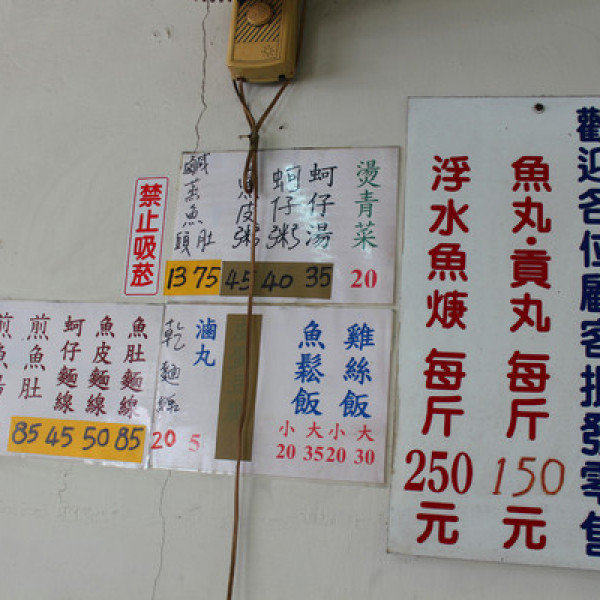 歡迎各位顧客批發零售
魚丸·貢丸 每斤 150 元
浮水魚焿 每斤 250 元
禁止吸菸
燙青菜 20
蚵仔湯 35
蚵仔粥 40
魚皮粥 45
魚肚 75
鹹蒸魚頭 13
雞絲飯 大 30 小 20
魚鬆飯 大 35 小 20
滷丸 5
乾麵線 20
魚肚麵線 85
魚皮麵線 50
蚵仔麵線 45
煎魚肚 85
煎魚